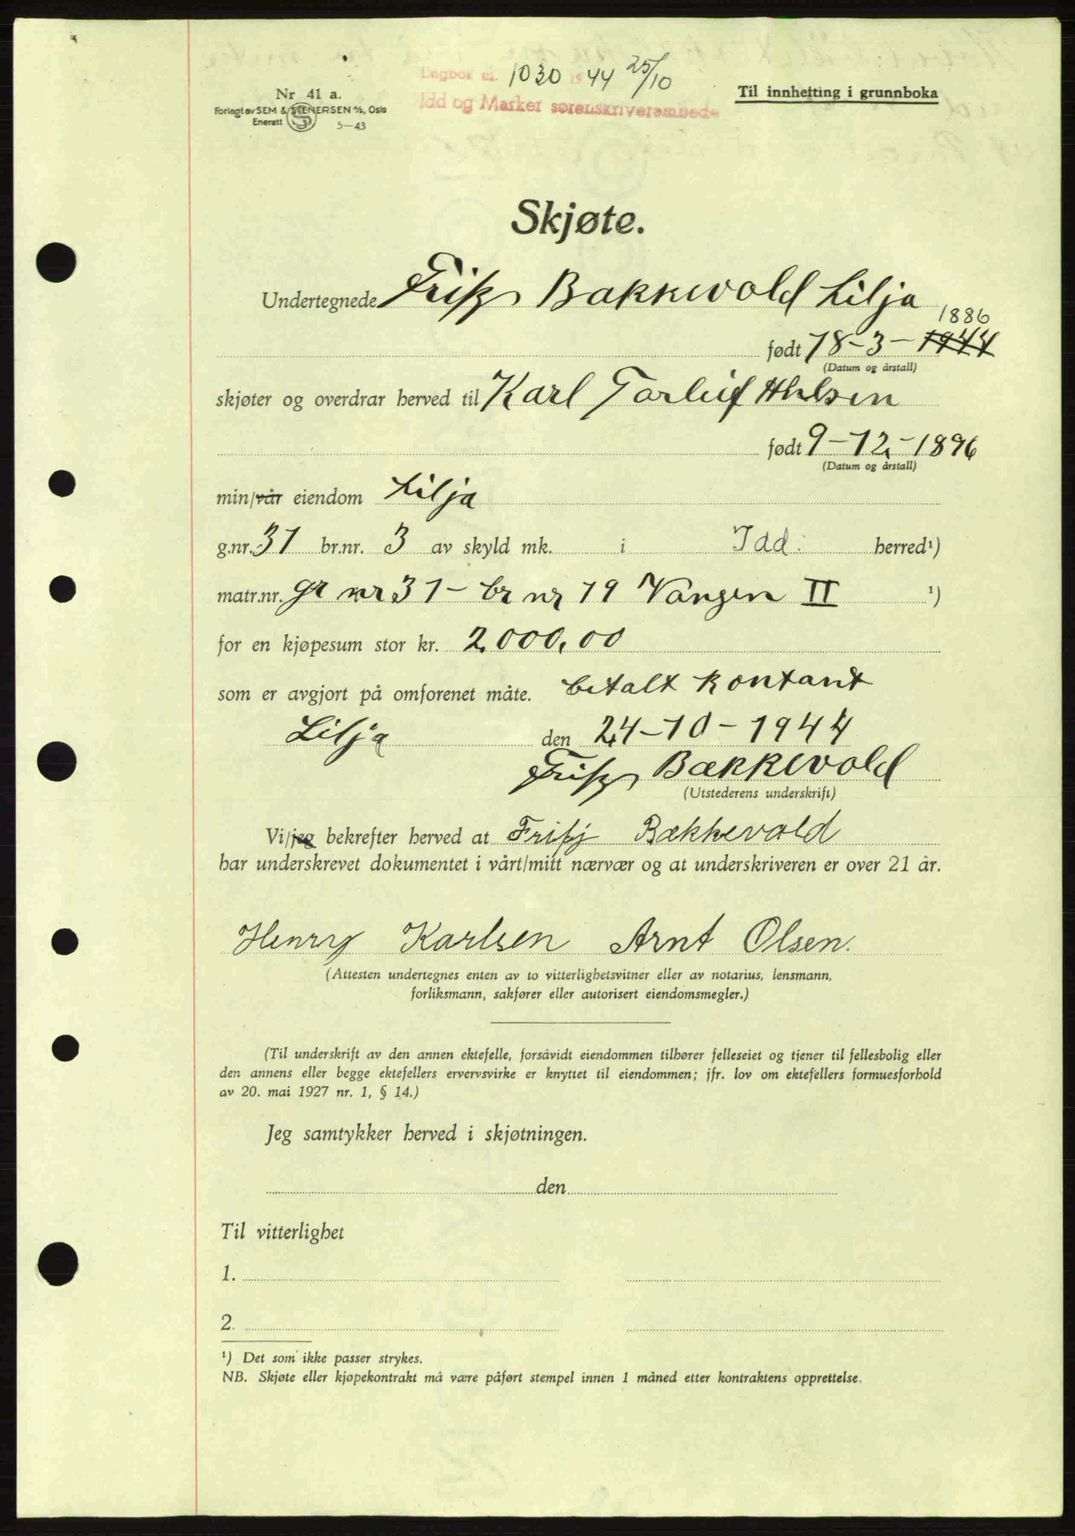 Nr 41 a.
Forlagt av SEM & STENERSEN A/S, Oslo
Enerett 5-43
Dagbok nr. 1030 1944 25/10
Idd og Marker sorenskriverembede
Til innhefting i grunnboka
Skjøte.
Undertegnede Fritz Bakkevold Lilja
1886
født 18-3-1944
(Datum og årstall)
skjøter og overdrar herved til Karl Torleif
født 9-12-1896
(Datum og årstall)
min/vår eiendom Lilja
g.nr. 31 br.nr. 3 av skyld mk. i Idd. herred¹)
matr.nr. gr nr 31 - br nr 19 Vangen II ¹)
for en kjøpesum stor kr. 2.000,00
som er avgjort på omforenet måte. betalt kontant
Lilja den 24-10-1944
Fritz Bækkevold
(Utstederens underskrift)
Vi/jeg bekrefter herved at Fritz Bækkevold
har underskrevet dokumentet i vårt/mitt nærvær og at underskriveren er over 21 år.
Henry Karlsen Arnt Olsen.
(Attesten undertegnes enten av to vitterlighetsvitner eller av notarius, lensmann,
forliksmann, sakfører eller autorisert eiendomsmegler.)
(Til underskrift av den annen ektefelle, forsåvidt eiendommen tilhører felleseiet og tjener til fellesbolig eller
den annens eller begge ektefellers ervervsvirke er knyttet til eiendommen; jfr. lov om ektefellers formuesforhold
av 20. mai 1927 nr. 1, § 14.)
Jeg samtykker herved i skjøtningen.
den
Til vitterlighet
1.
2.
¹) Det som ikke passer strykes.
NB. Skjøte eller kjøpekontrakt må være påført stempel innen 1 måned etter kontraktens opprettelse.